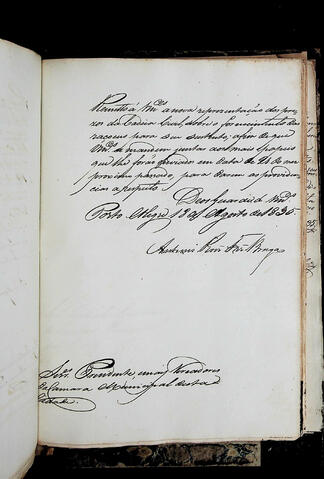 Remetto a Vm.ces a nova representação dos pre-
zos da Cadeia Civil, sobre o fornecimento das
racoens para seu sustento, afim de que
Vm.ces a mandem juntar aos mais papeis
que lhe forão enviados em data de 26 do mez
proximo passado, para darem as providen-
cias a respeito.
Deos Guarde a Vm.ces
Porto Alegre 13 de Agosto de 1835.
Antonio Roiz Fes Braga
Snr.s Presidente, e mais Vereadores
da Camara Municipal desta
Cidade.